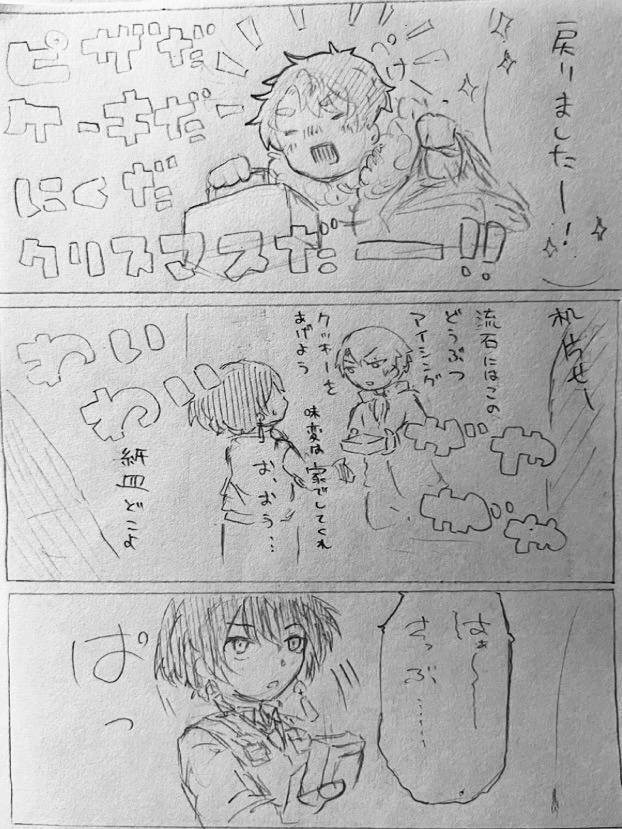 戻りましたー!
ぺけー
ピザだ
ケーキだー
にくだ
クリスマスだーーー!!
机出せー
流石にはこの
どうぶつ
アイシング
クッキーを
あげよう
味変は家でしてくれ
お、おう…
ザザザザ
わいわい
わい
紙皿どこよ
はぁ〜
さっぶ……
ぱっ